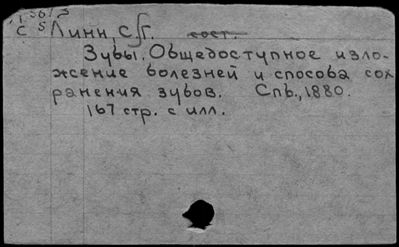 Линн, С. Г. сост.
Зубы. Общедоступное изло-
жение болезней и способа сох
ранения зубов. Спб., 1880.
167 стр. с илл.